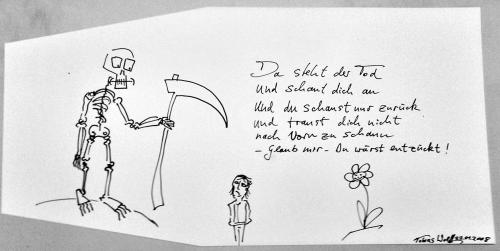 Da steht der Tod
Und schaut dich an
Und du schaust nur zurück
und traust dich nicht
nach Vorn zu schauen
- Glaub mir - Du wärst entzückt!
Tobias